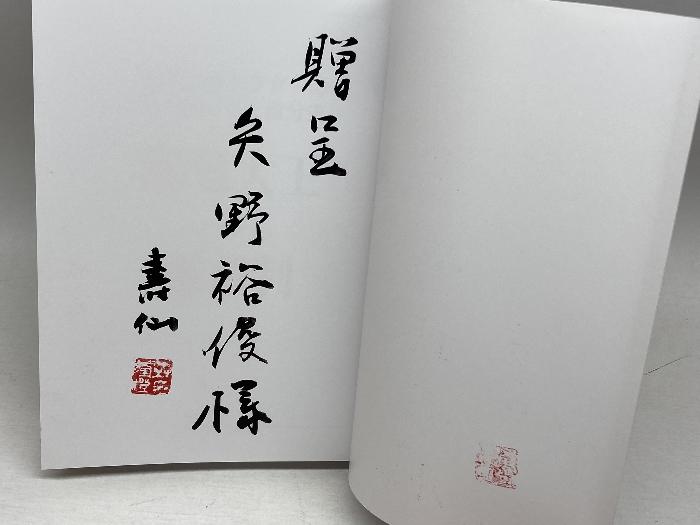 贈呈
矢野裕俊様
壽仙